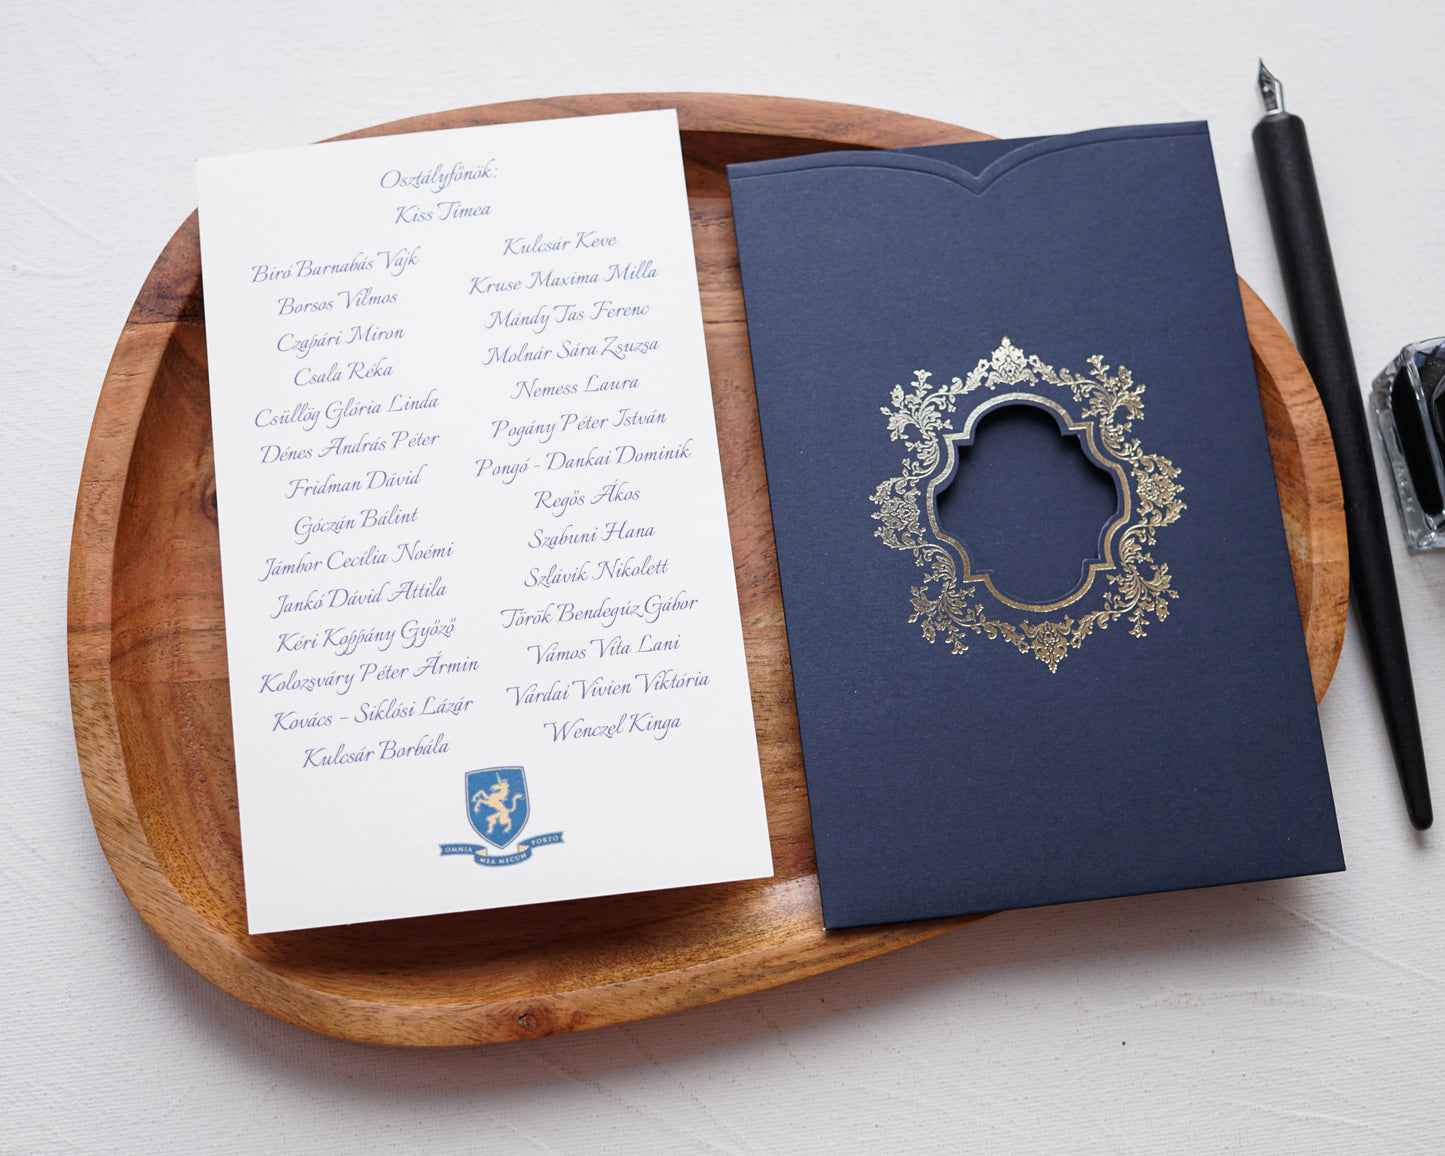 Osztályfőnök:
Kiss Tímea
Biró Barnabás Vajk
Borsos Vilmos
Czapári Miron
Csala Réka
Csüllög Glória Linda
Dénes András Péter
Fridman Dávid
Góczán Bálint
Jámbor Cecília Noémi
Jankó Dávid Attila
Kéri Koppány Győző
Kolozsváry Péter Ármin
Kovács - Siklósi Lázár
Kulcsár Borbála
Kulcsár Keve
Kruse Maxima Milla
Mándy Tas Ferenc
Molnár Sára Zsuzsa
Nemess Laura
Pogány Péter István
Pongó - Dankai Dominik
Regős Ákos
Szabuni Hana
Szlávik Nikolett
Török Bendegúz Gábor
Vámos Vita Lani
Várdai Vivien Viktória
Wenczel Kinga
OMNIA MEA MECUM PORTO